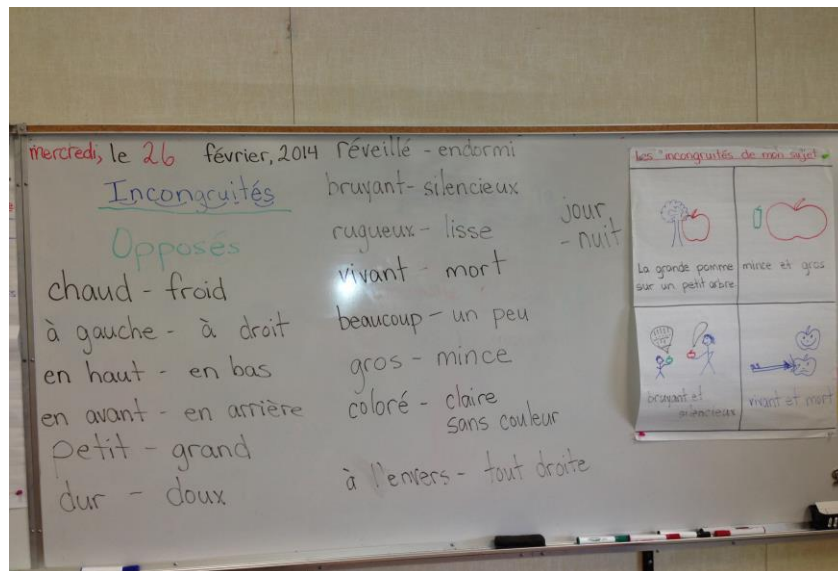 mercredi, le 26 février, 2014
Incongruités
Opposés
chaud - froid
à gauche - à droit
en haut - en bas
en avant - en arrière
petit - grand
dur - doux
réveillé - endormi
bruyant - silencieux
rugueux - lisse
vivant - mort
beaucoup - un peu
gros - mince
coloré - claire
sans couleur
à l'envers - tout droite
jour
- nuit
Les incongruités de mon sujet
La grande pomme
sur un petit arbre
mince et gros
bruyant et
silencieux
vivant et mort